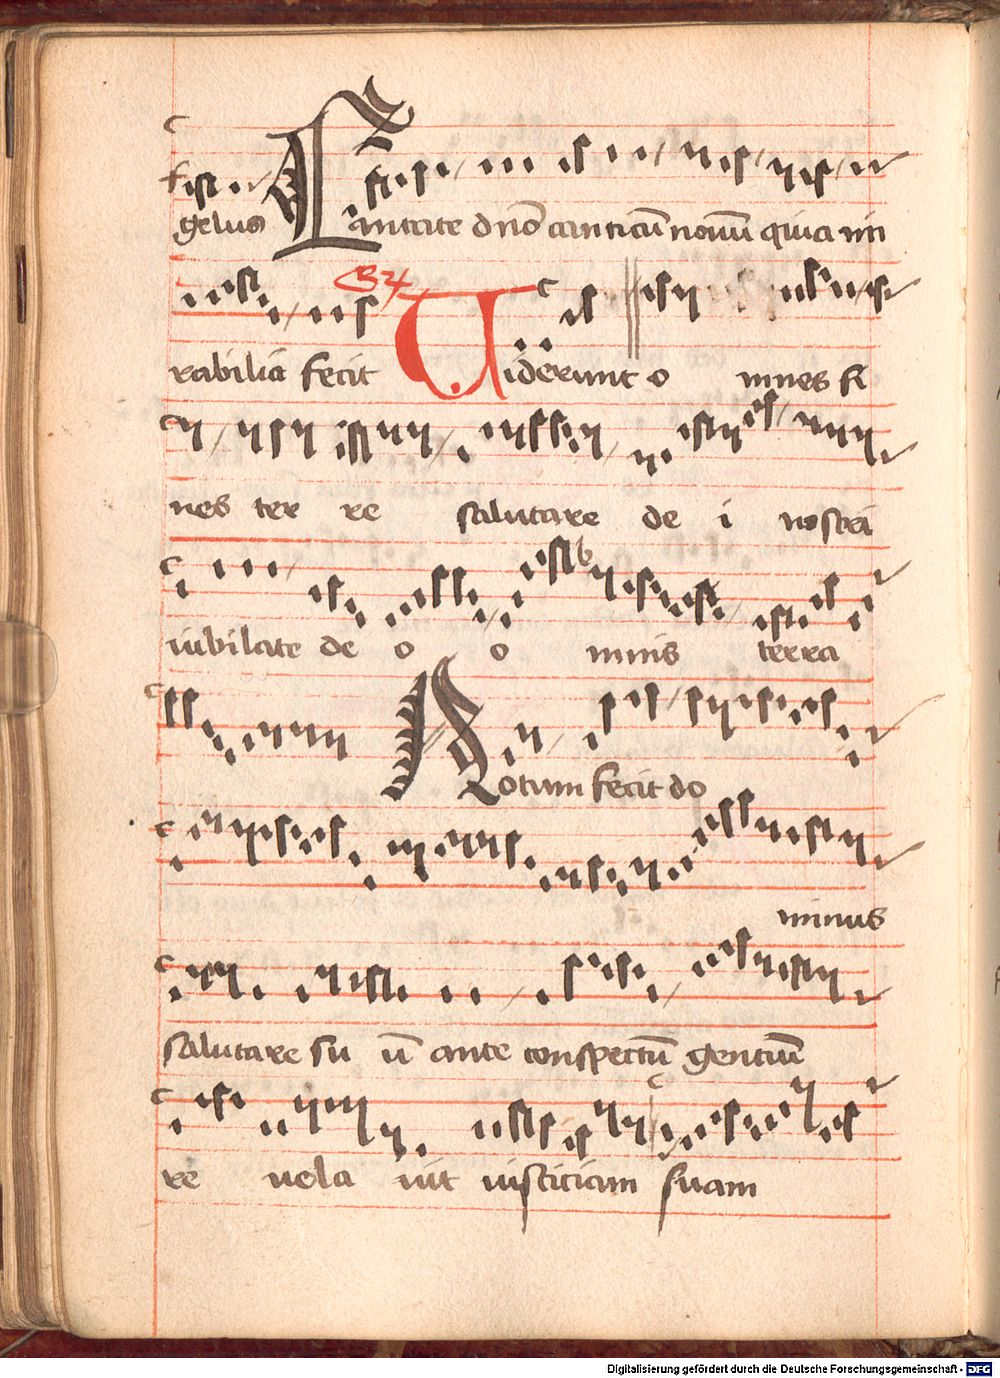 gelus Cantate dño canticū nouū quia mi
rabilia fecit Gr Uiderunt o mnes fi
nes ter re salutare de i nostri
iubilate de o o mnis terra
Notum fecit do
minus
salutare su ū ante conspectū gentiū
re uela uit iusticiam suam
Digitalisierung gefördert durch die Deutsche Forschungsgemeinschaft - DFG